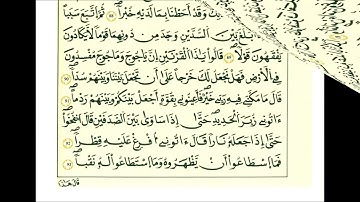 وَقَدْ أَحَطْنَا بِمَا لَدَيْهِ خُبْرًا ٩١ ثُمَّ أَتْبَعَ سَبَبًا
بَلَغَ بَيْنَ السَّدَّيْنِ وَجَدَ مِنْ دُونِهِمَا قَوْمًا لَا يَكَادُونَ
يَفْقَهُونَ قَوْلًا ٩٣ قَالُوا يَاذَا الْقَرْنَيْنِ إِنَّ يَأْجُوجَ وَمَأْجُوجَ مُفْسِدُونَ
فِي الْأَرْضِ فَهَلْ نَجْعَلُ لَكَ خَرْجًا عَلَى أَنْ تَجْعَلَ بَيْنَنَا وَبَيْنَهُمْ سَدًّا ٩٤
قَالَ مَا مَكَّنِّي فِيهِ رَبِّي خَيْرٌ فَأَعِينُونِي بِقُوَّةٍ أَجْعَلْ بَيْنَكُمْ وَبَيْنَهُمْ رَدْمًا ٩٥
ءَاتُونِي زُبَرَ الْحَدِيدِ حَتَّى إِذَا سَاوَى بَيْنَ الصَّدَفَيْنِ قَالَ انْفُخُوا
حَتَّى إِذَا جَعَلَهُ نَارًا قَالَ ءَاتُونِي أُفْرِغْ عَلَيْهِ قِطْرًا ٩٦
فَمَا اسْطَاعُوا أَنْ يَظْهَرُوهُ وَمَا اسْتَطَاعُوا لَهُ نَقْبًا ٩٧
قَالَ هَذَا